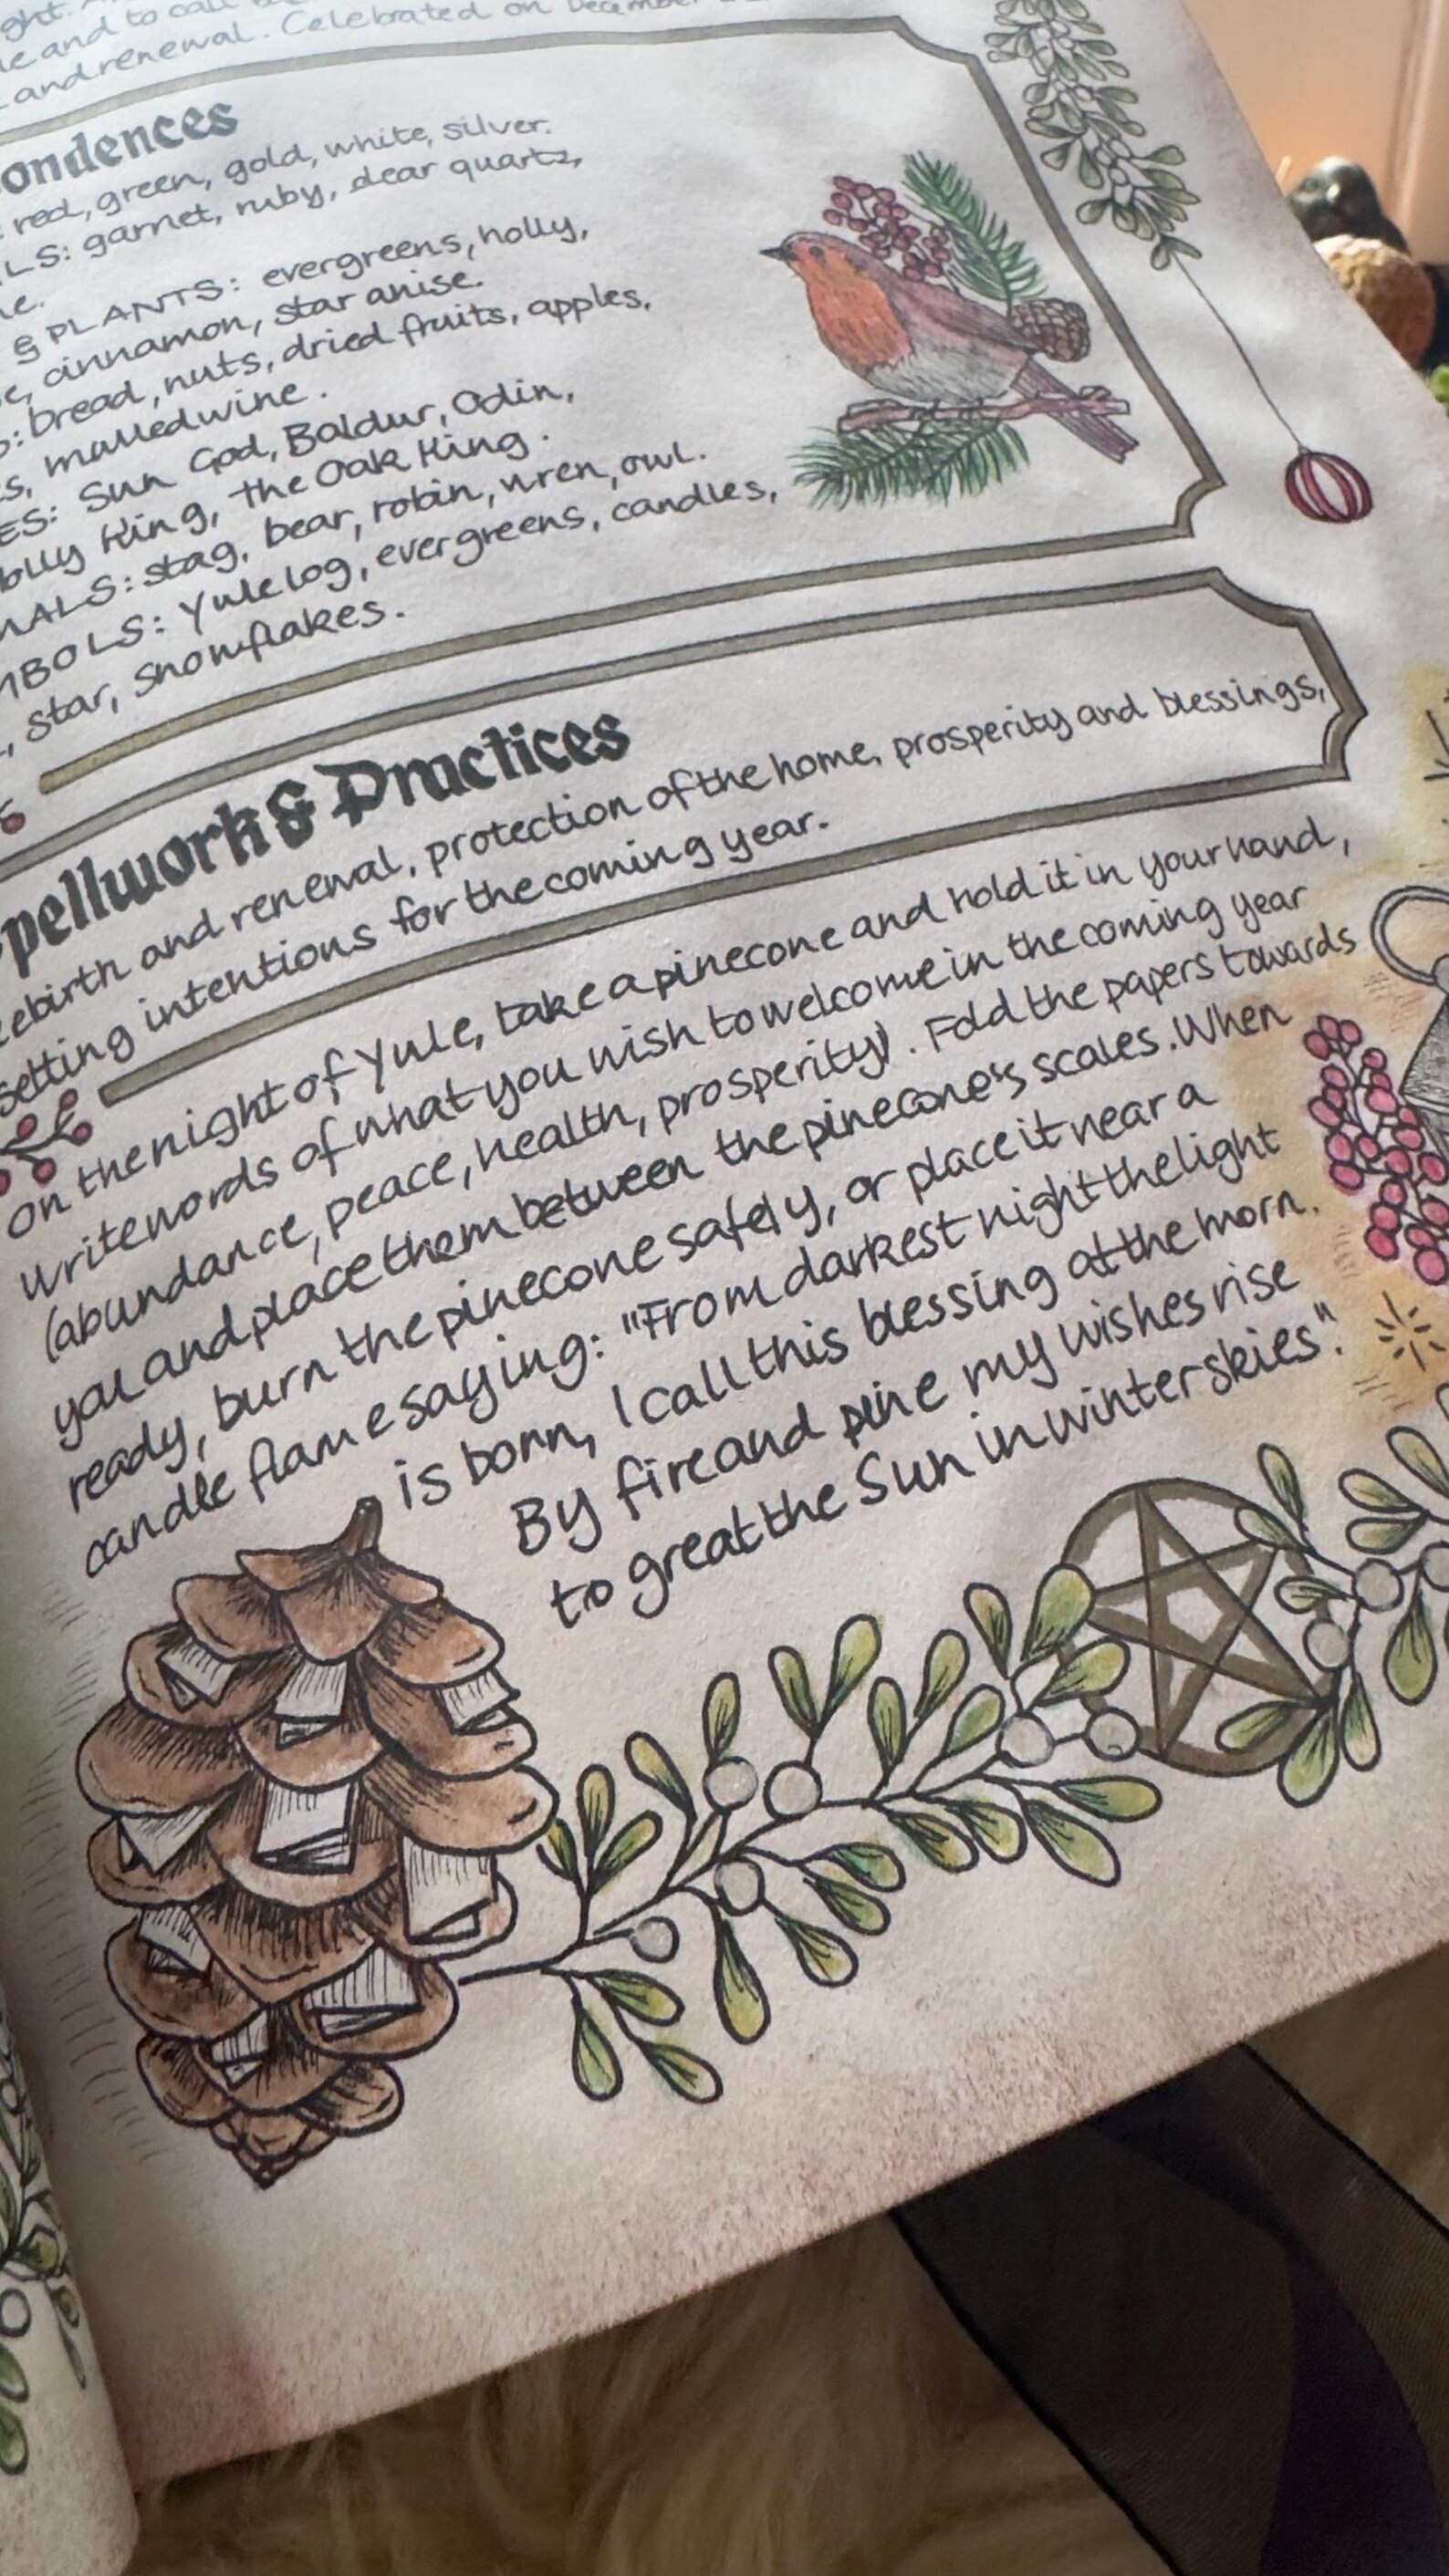 ght.
e and to call
and renewal. Celebrated on December
ondences
: red, green, gold, white, silver.
LS: garnet, ruby, clear quartz,
ne.
& PLANTS: evergreens, holly,
e, cinnamon, star anise.
S: bread, nuts, dried fruits, apples,
s, mulled wine.
ES: Sun God, Baldur, Odin,
olly King, the Oak King.
MALS: stag, bear, robin, wren, owl.
MBOLS: Yule log, evergreens, candles,
, star, snowflakes.
Spellwork & Practices
Rebirth and renewal, protection of the home, prosperity and blessings,
setting intentions for the coming year.
On the night of Yule, take a pinecone and hold it in your hand,
write words of what you wish to welcome in the coming year
(abundance, peace, health, prosperity). Fold the papers towards
you and place them between the pinecone's scales. When
ready, burn the pinecone safely, or place it near a
candle flame saying: "From darkest night the light
is born, I call this blessing at the morn.
By fire and pine my wishes rise
to great the Sun in winter skies".